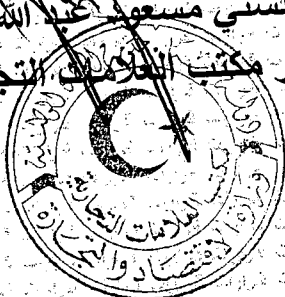 حسني مسعود عبد الله
مكتب العلامات التجا
مكتب العلامات التجارية
وزارة الاقتصاد والتجارة